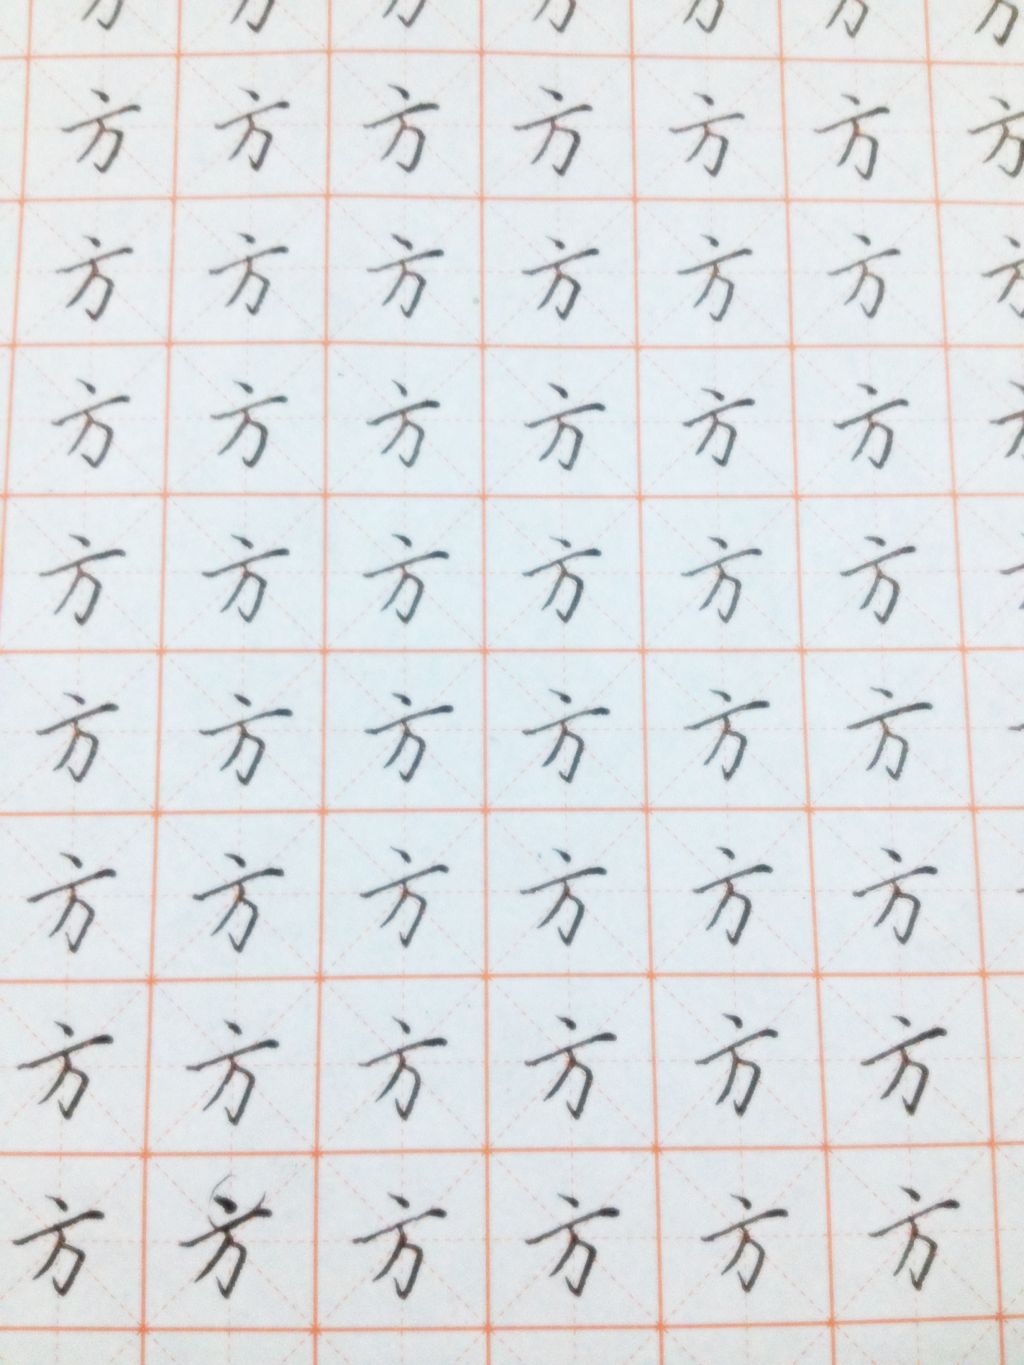 方方方方方方方
方方方方方方方
方方方方方方
方方方方方方
方方方方方方
方方方方方方
方方方方方方
方方方方方方